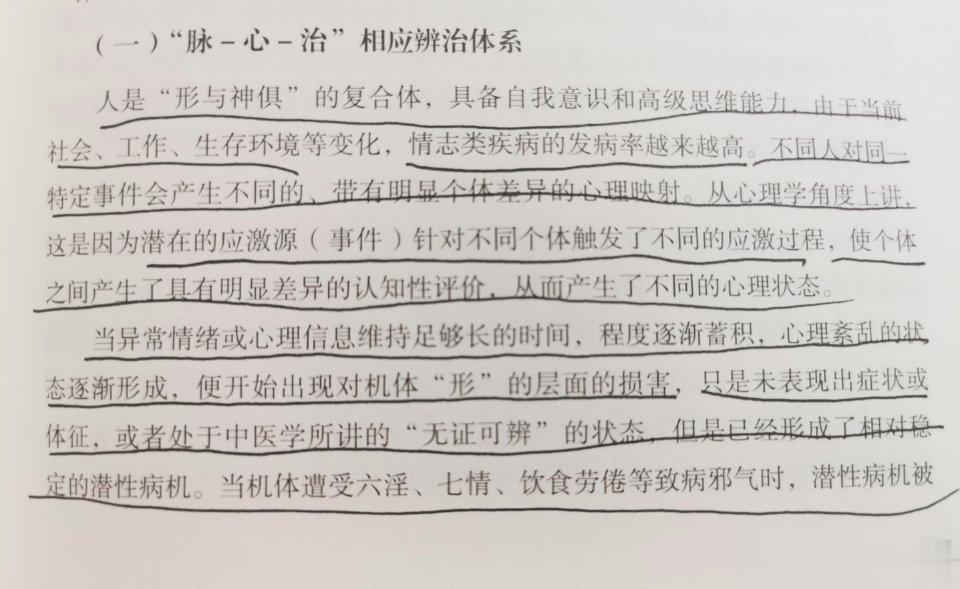 (一)“脉－心－治”相应辨治体系
人是“形与神俱”的复合体，具备自我意识和高级思维能力，由于当前
社会、工作、生存环境等变化，情志类疾病的发病率越来越高。不同人对同一
特定事件会产生不同的、带有明显个体差异的心理映射。从心理学角度上讲，
这是因为潜在的应激源（事件）针对不同个体触发了不同的应激过程，使个体
之间产生了具有明显差异的认知性评价，从而产生了不同的心理状态。
当异常情绪或心理信息维持足够长的时间，程度逐渐蓄积，心理紊乱的状
态逐渐形成，便开始出现对机体“形”的层面的损害，只是未表现出症状或
体征，或者处于中医学所讲的“无证可辨”的状态，但是已经形成了相对稳
定的潜性病机。当机体遭受六淫、七情、饮食劳倦等致病邪气时，潜性病机被